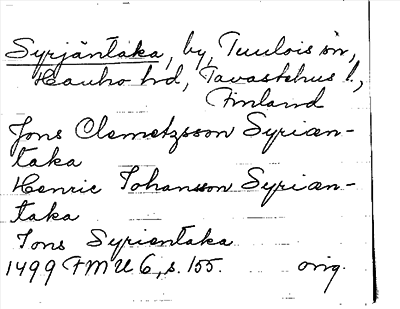 Syrjäntaka, by, Tuulois sn,
Hauho hd, Tavastehus l.,
Finland
Jons Clemetzsson Syrian-
taka
Henric Johansson Syrian-
taka
Jons Syrientaka
1499 FMU 6, s. 155. orig.